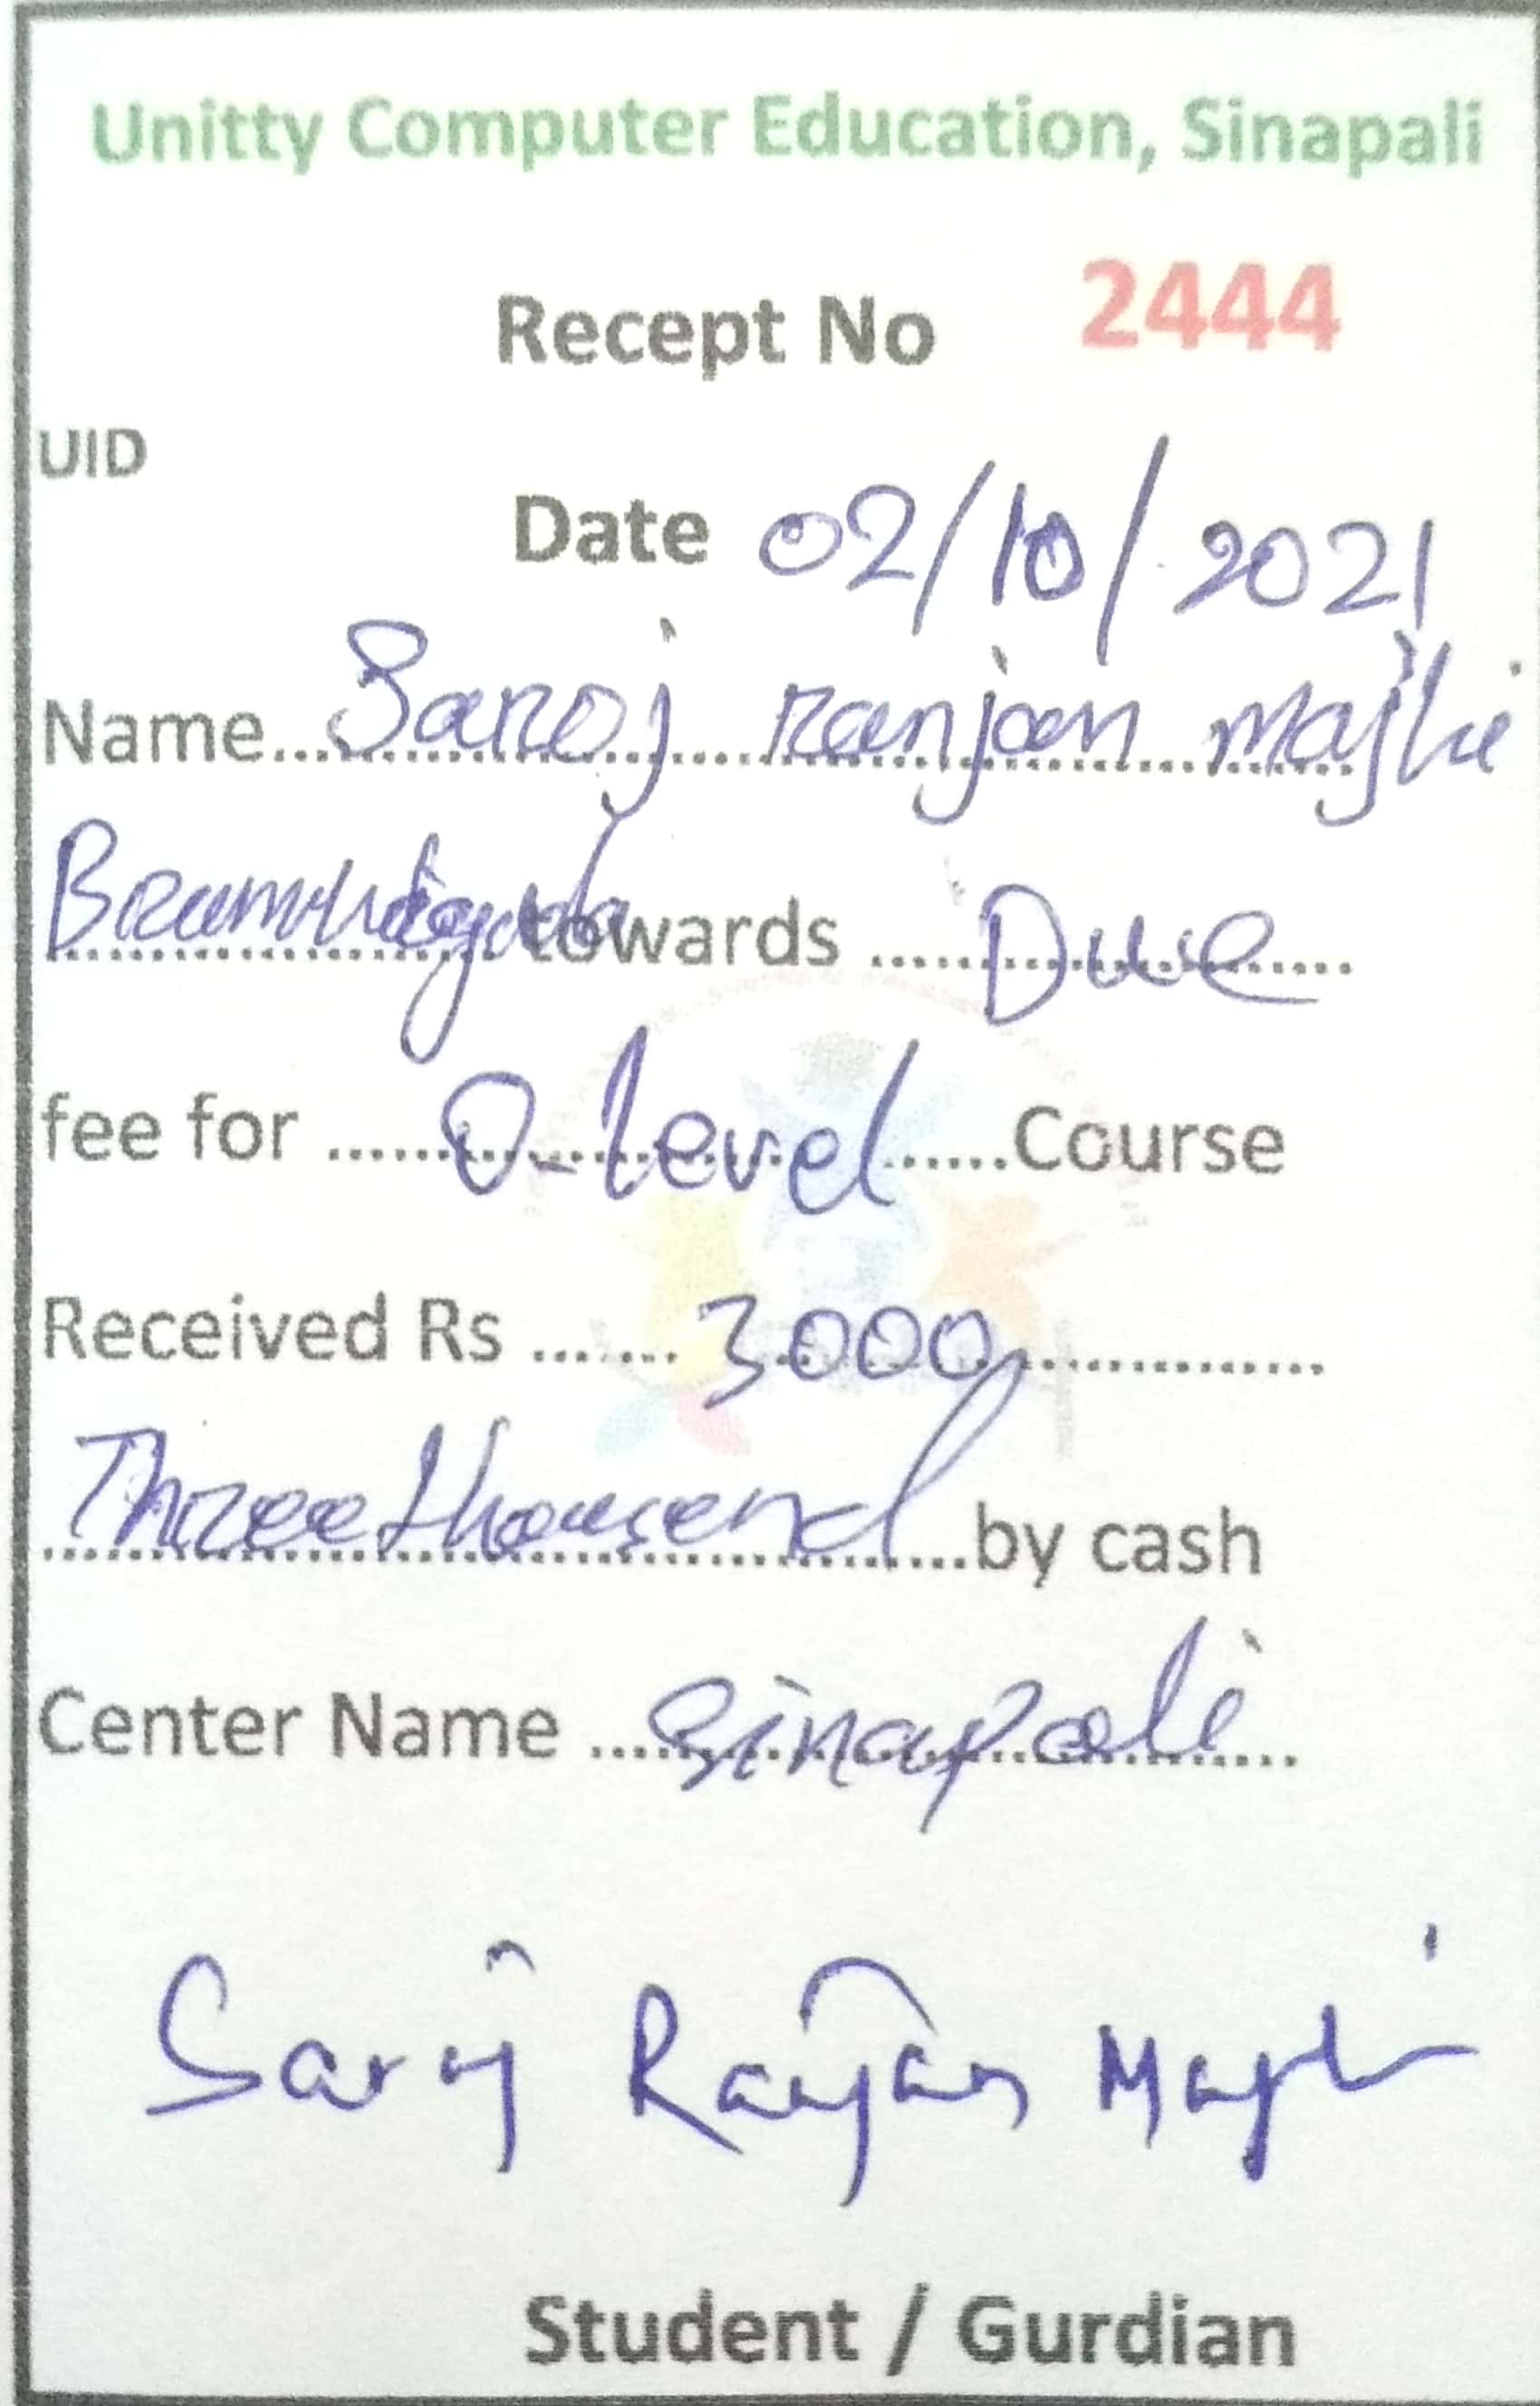 Unitty Computer Education, Sinapali
Recept No 2444
UID
Date 02/10/2021
Name Saroj ranjan majhi
towards Due
fee for O-level Course
Received Rs 3000
Three thousend by cash
Center Name Sinapali
Saroj Ranjan Majhi
Student / Gurdian